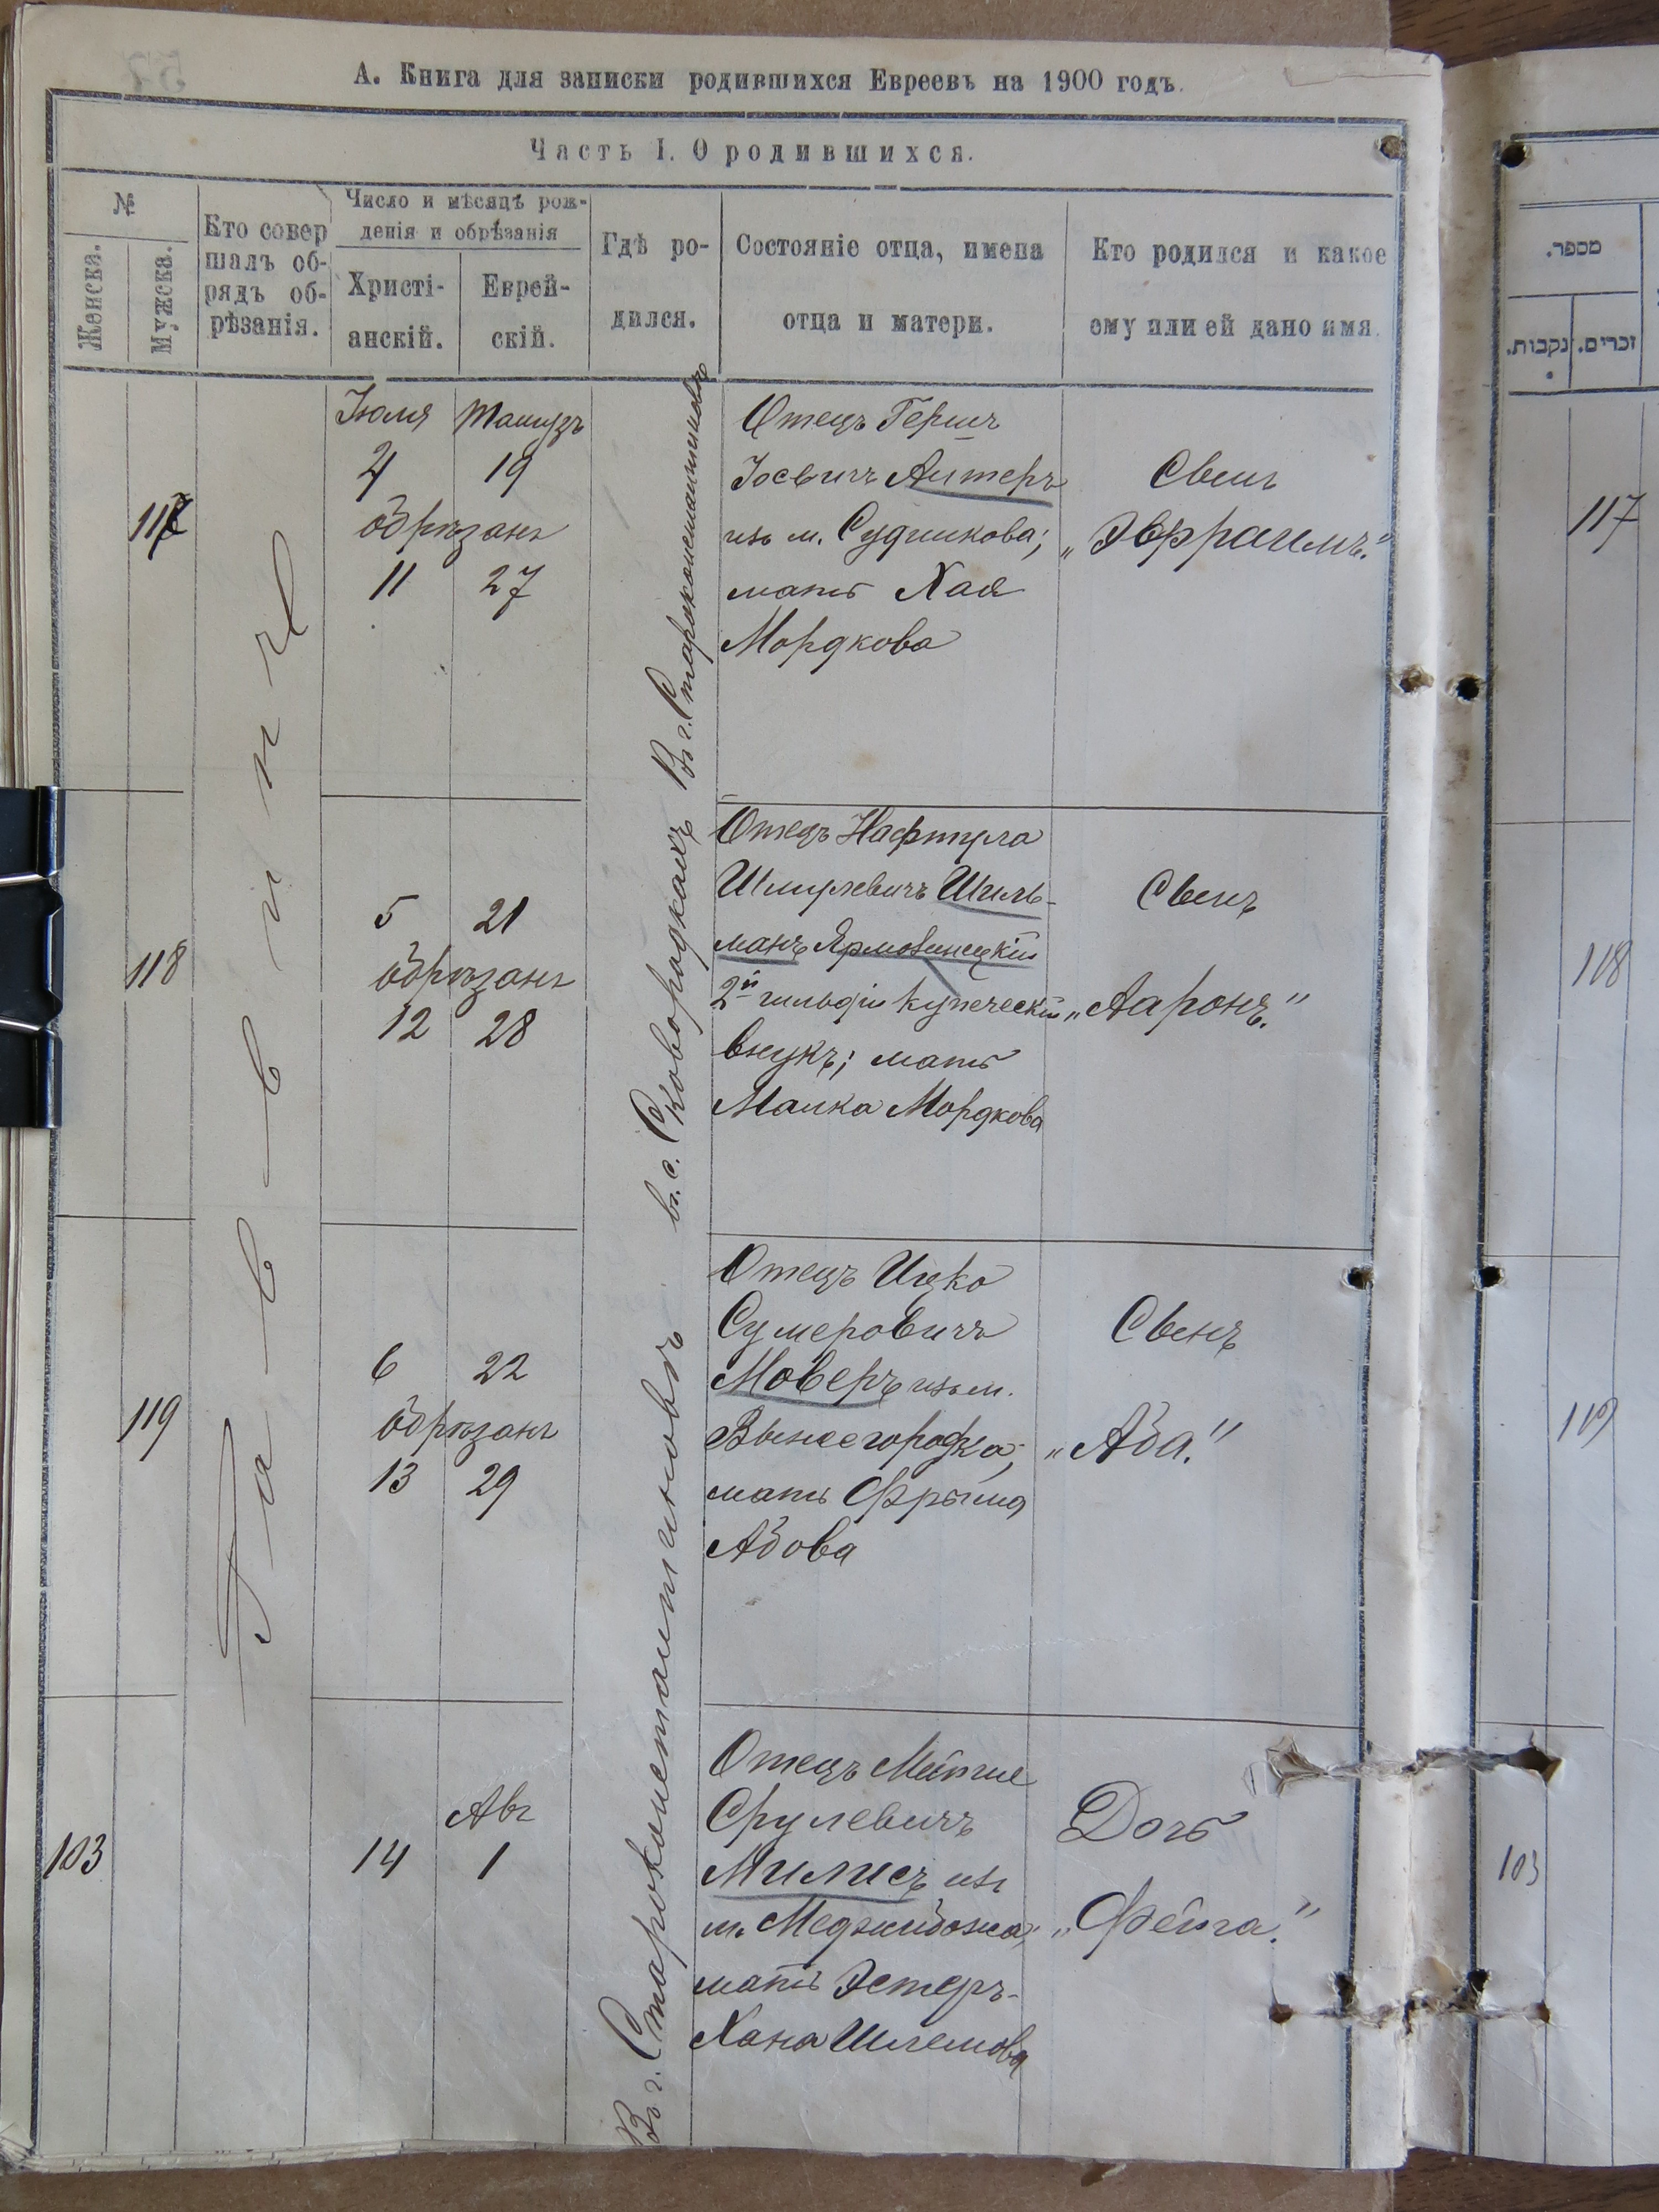 А. Книга для записки родившихся Евреевъ на 1900 годъ.
Часть I. О родившихся.
№
Женска.
Мужска.
Кто совер
шалъ об-
рядъ об-
рѣзанія.
Число и мѣсяцъ рож-
денія и обрѣзанія
Христі-
анскій.
Еврей-
скій.
Гдѣ ро-
дился.
Состояніе отца, имена
отца и матери.
Кто родился и какое
ему или ей дано имя.
Раввинъ
Въ г. Староконстантиновѣ
въ с. Сковородкахъ
Въ г. Староконстантиновѣ
117
Іюля Тамузъ
4 19
обрѣзанъ
11 27
Отецъ Гершъ
Іосьичъ Аитеръ
изъ м. Судилкова;
мать Хая
Мордкова
Сынъ
„Эфраимъ."
118
5 21
обрѣзанъ
12 28
Отецъ Нафтула
Шмулевичъ Шиль-
манъ Ярмолинецкій
2й гильдіи купеческій
внукъ; мать
Малка Мордкова
Сынъ
„Ааронъ."
119
6 22
обрѣзанъ
13 29
Отецъ Ицко
Сумеровичъ
Моверъ изъ м.
Вышегородка;
мать Фрыма
Абова
Сынъ
„Аба."
103
Авъ
14 1
Отецъ
Срулевичъ
Милисъ изъ
м. Меджибожа;
мать Эстеръ-
Хана Шлемова
Дочь
„Фейга."
מספר.
נקבות.
זכרים.
117
118
119
103